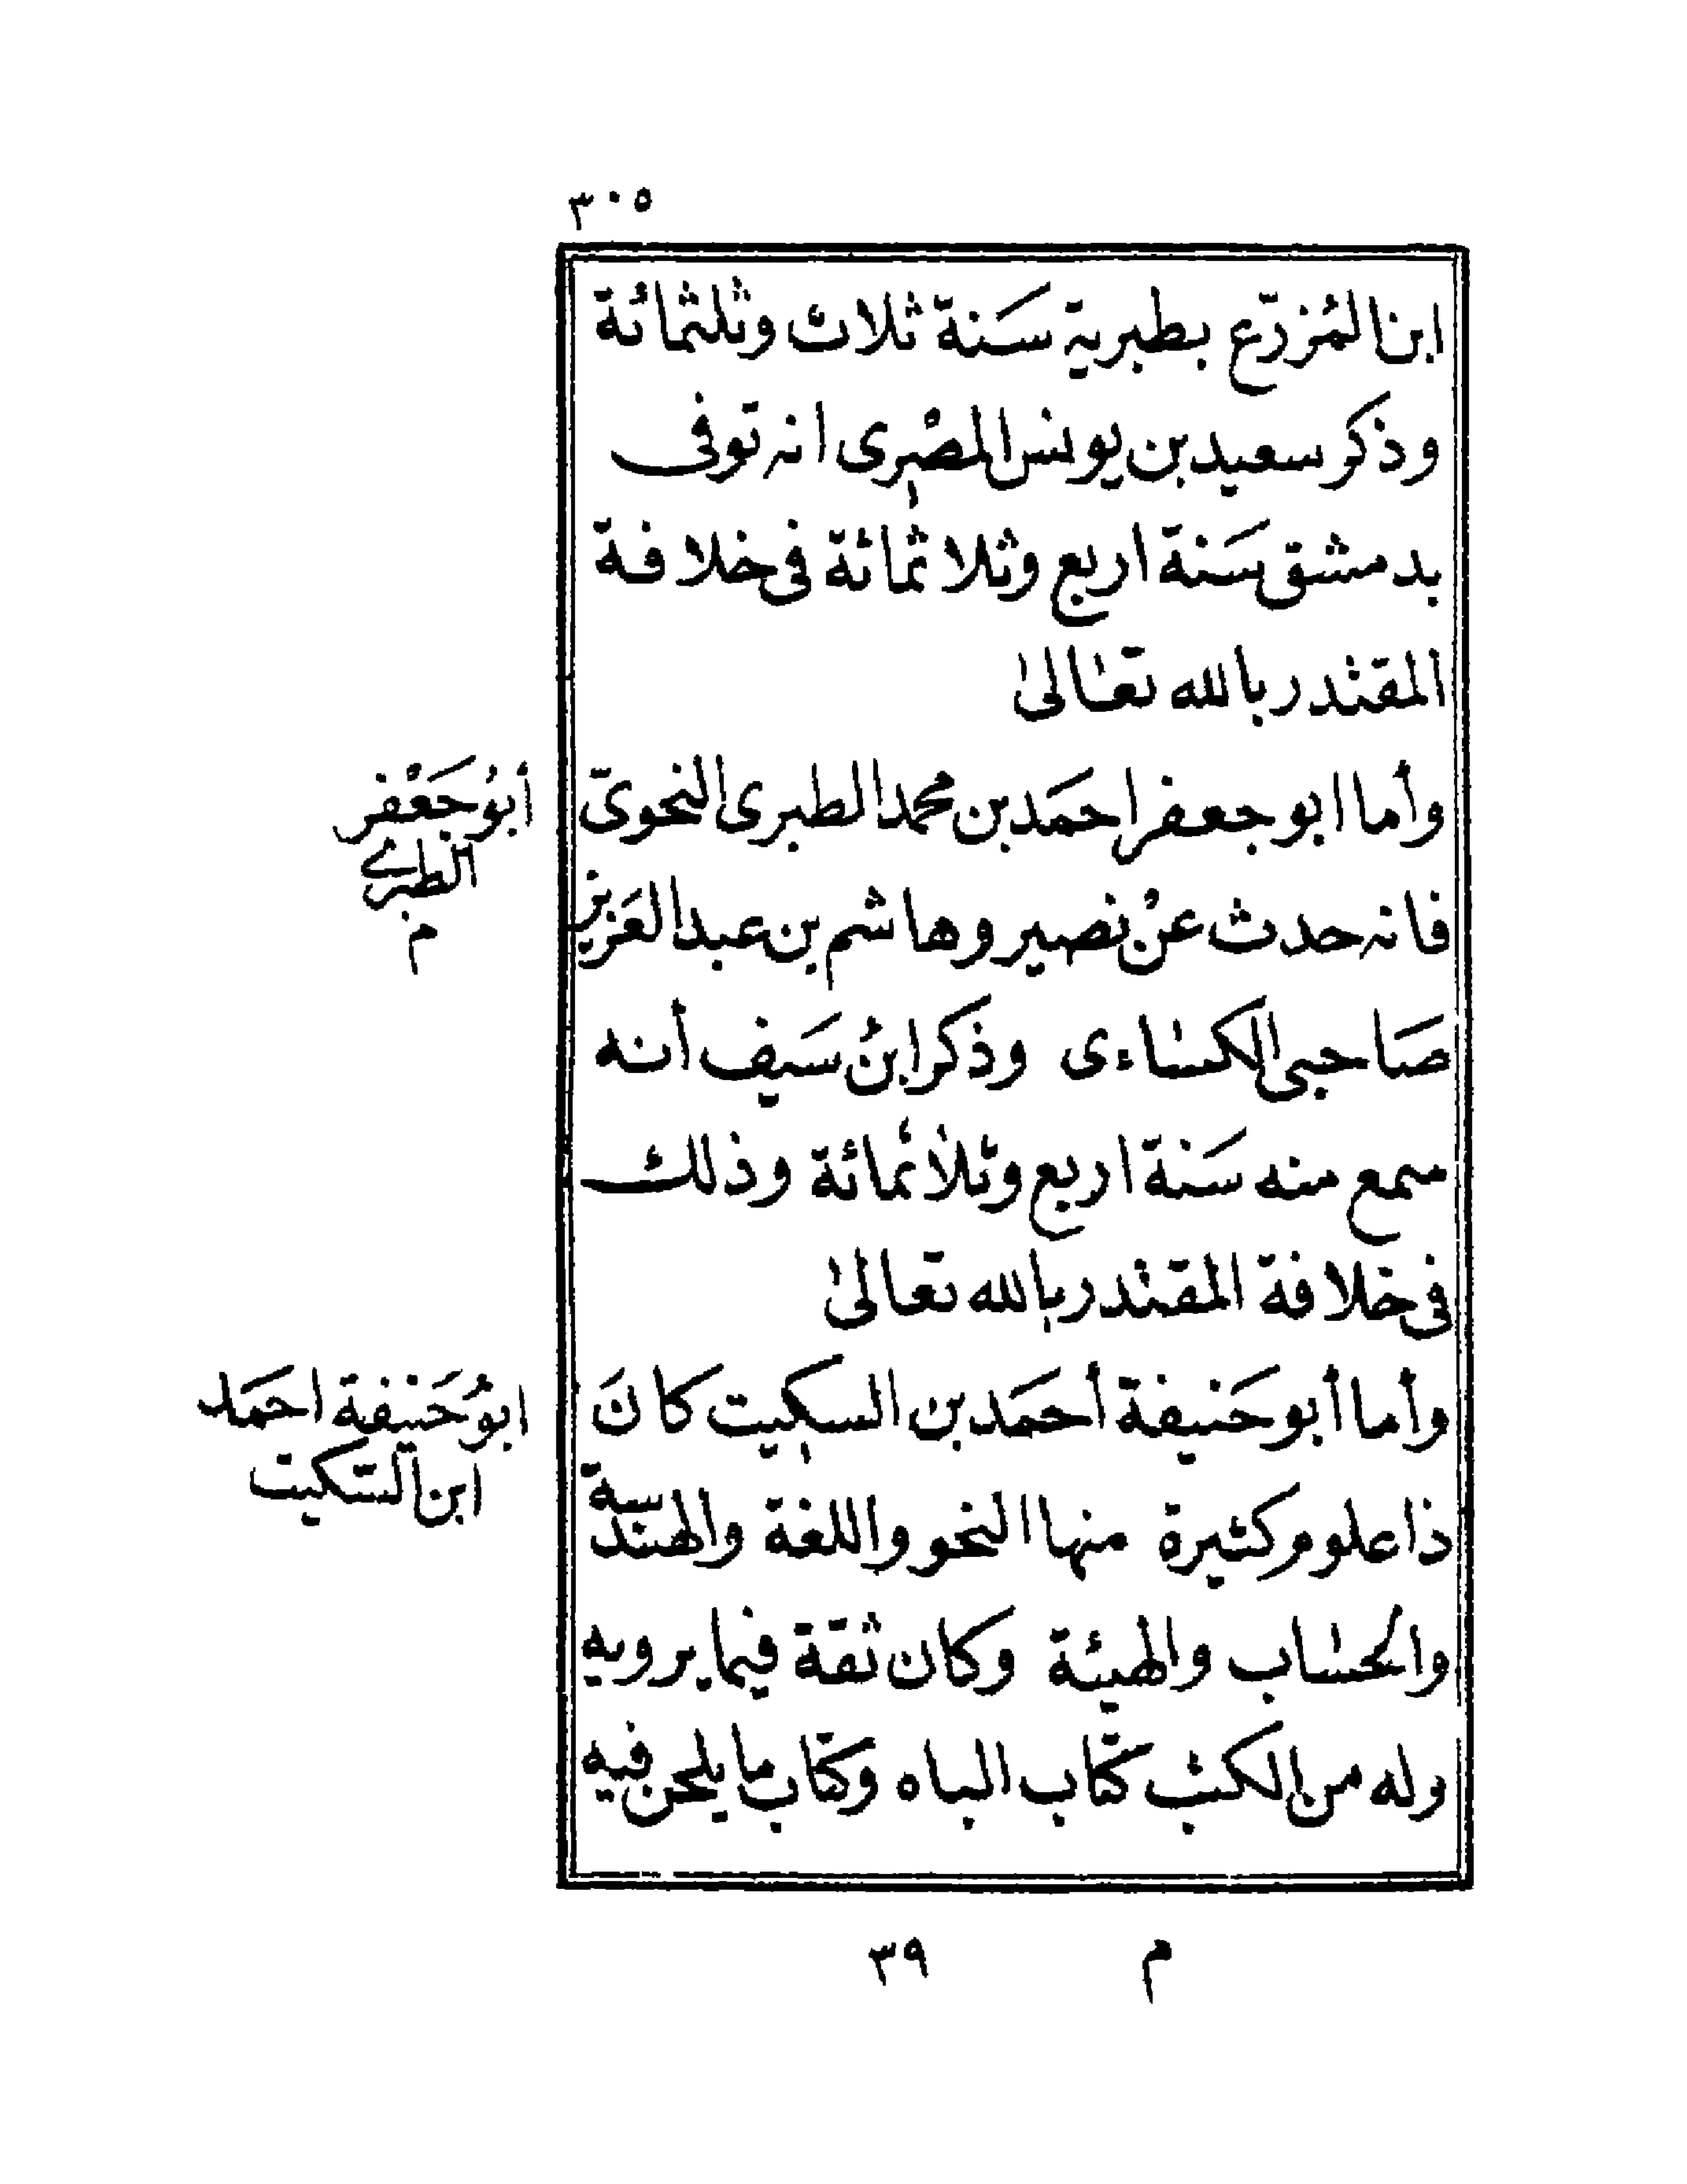 ٣٠٥
ابن المُزرّع بطبرية سَنة ثلاث وثلثمائة
وذكر سعيد بن يونس المصْرى انه توفى
بدمشق سَنة اربع وثلاثمائة فى خلافة
المقتدر بالله تعالى
وأما ابو جعفر احمَد بن محمد الطبرى النحوىّ
أبوُ جَعْفر
الطبرى
م
فانه حدث عنْ نصير وهاشم بن عبد العَزيز
صَاحبى الكساءى وذكر ابنُ سَيف أنه
سمع منه سَنة اربع وثلاثمائة وذلك
فى خلافة المقتدر بالله تعالى
وأما أبو حَنيفة أحمَد بن السكيت كانَ
ابوُ حَنيفة احمَد
ابن السّكيت
ذا علوم كثيرة منها النحو واللغة والهندسة
والحساب والهيئة وكان ثقة فيما يرويه
وله من الكتب كتاب الباه وكتاب ما يلحن فيه
م ٣٩